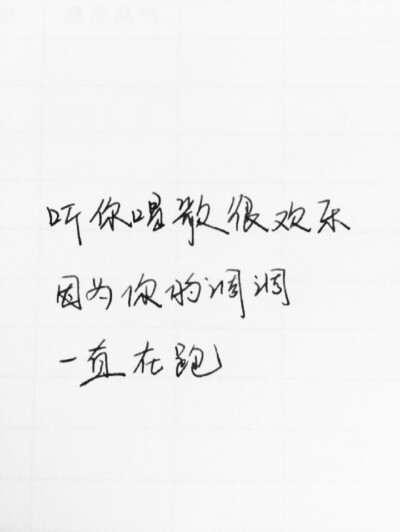 听你唱歌很欢乐
因为你的调调
一直在跑